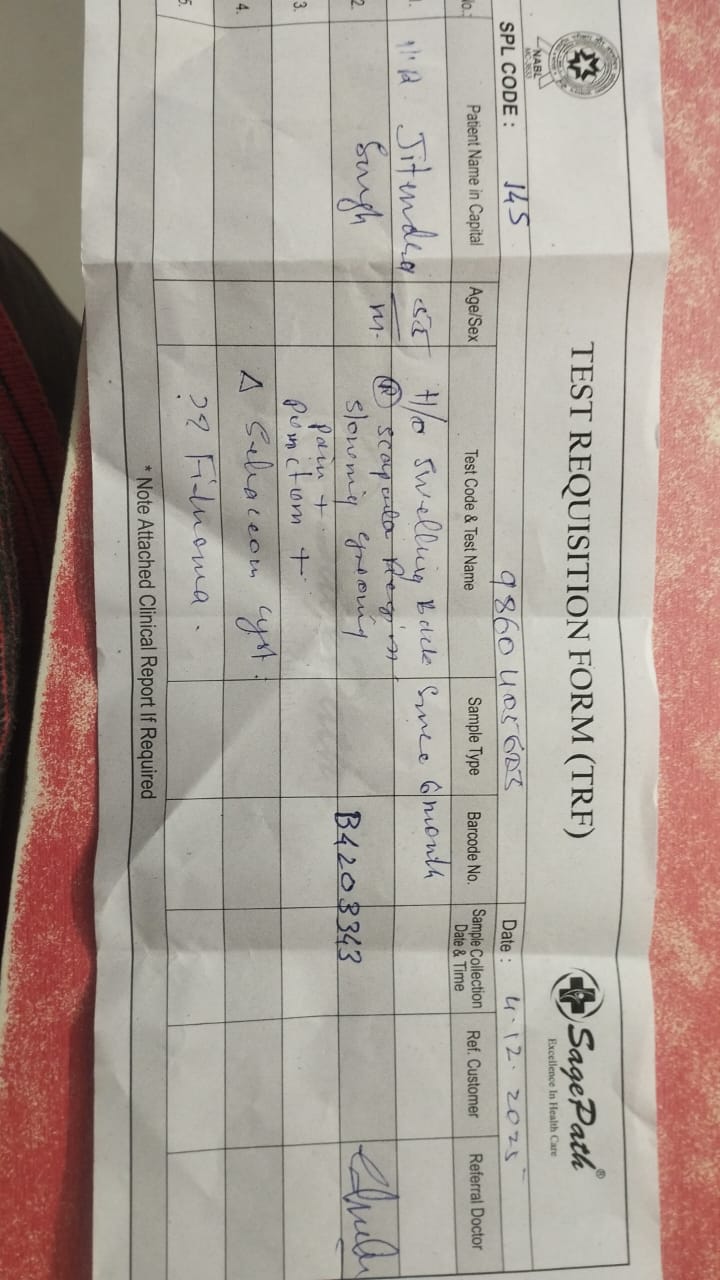 NABL
MC-3633
TEST REQUISITION FORM (TRF)
SagePath®
Excellence In Health Care
SPL CODE : 145
9860405603
Date : 4.12.2025
No.: Patient Name in Capital Age/Sex Test Code & Test Name Sample Type Barcode No. Sample Collection Date & Time Ref. Customer Referral Doctor
1. Jitendra 55 H/o swelling Back since 6 month
(R) scapula Region
2. Singh M. slowing growing B4203343
pain +
3. punctom +
4. Δ Sebaceom cyst.
5. ??
* Note Attached Clinical Report If Required